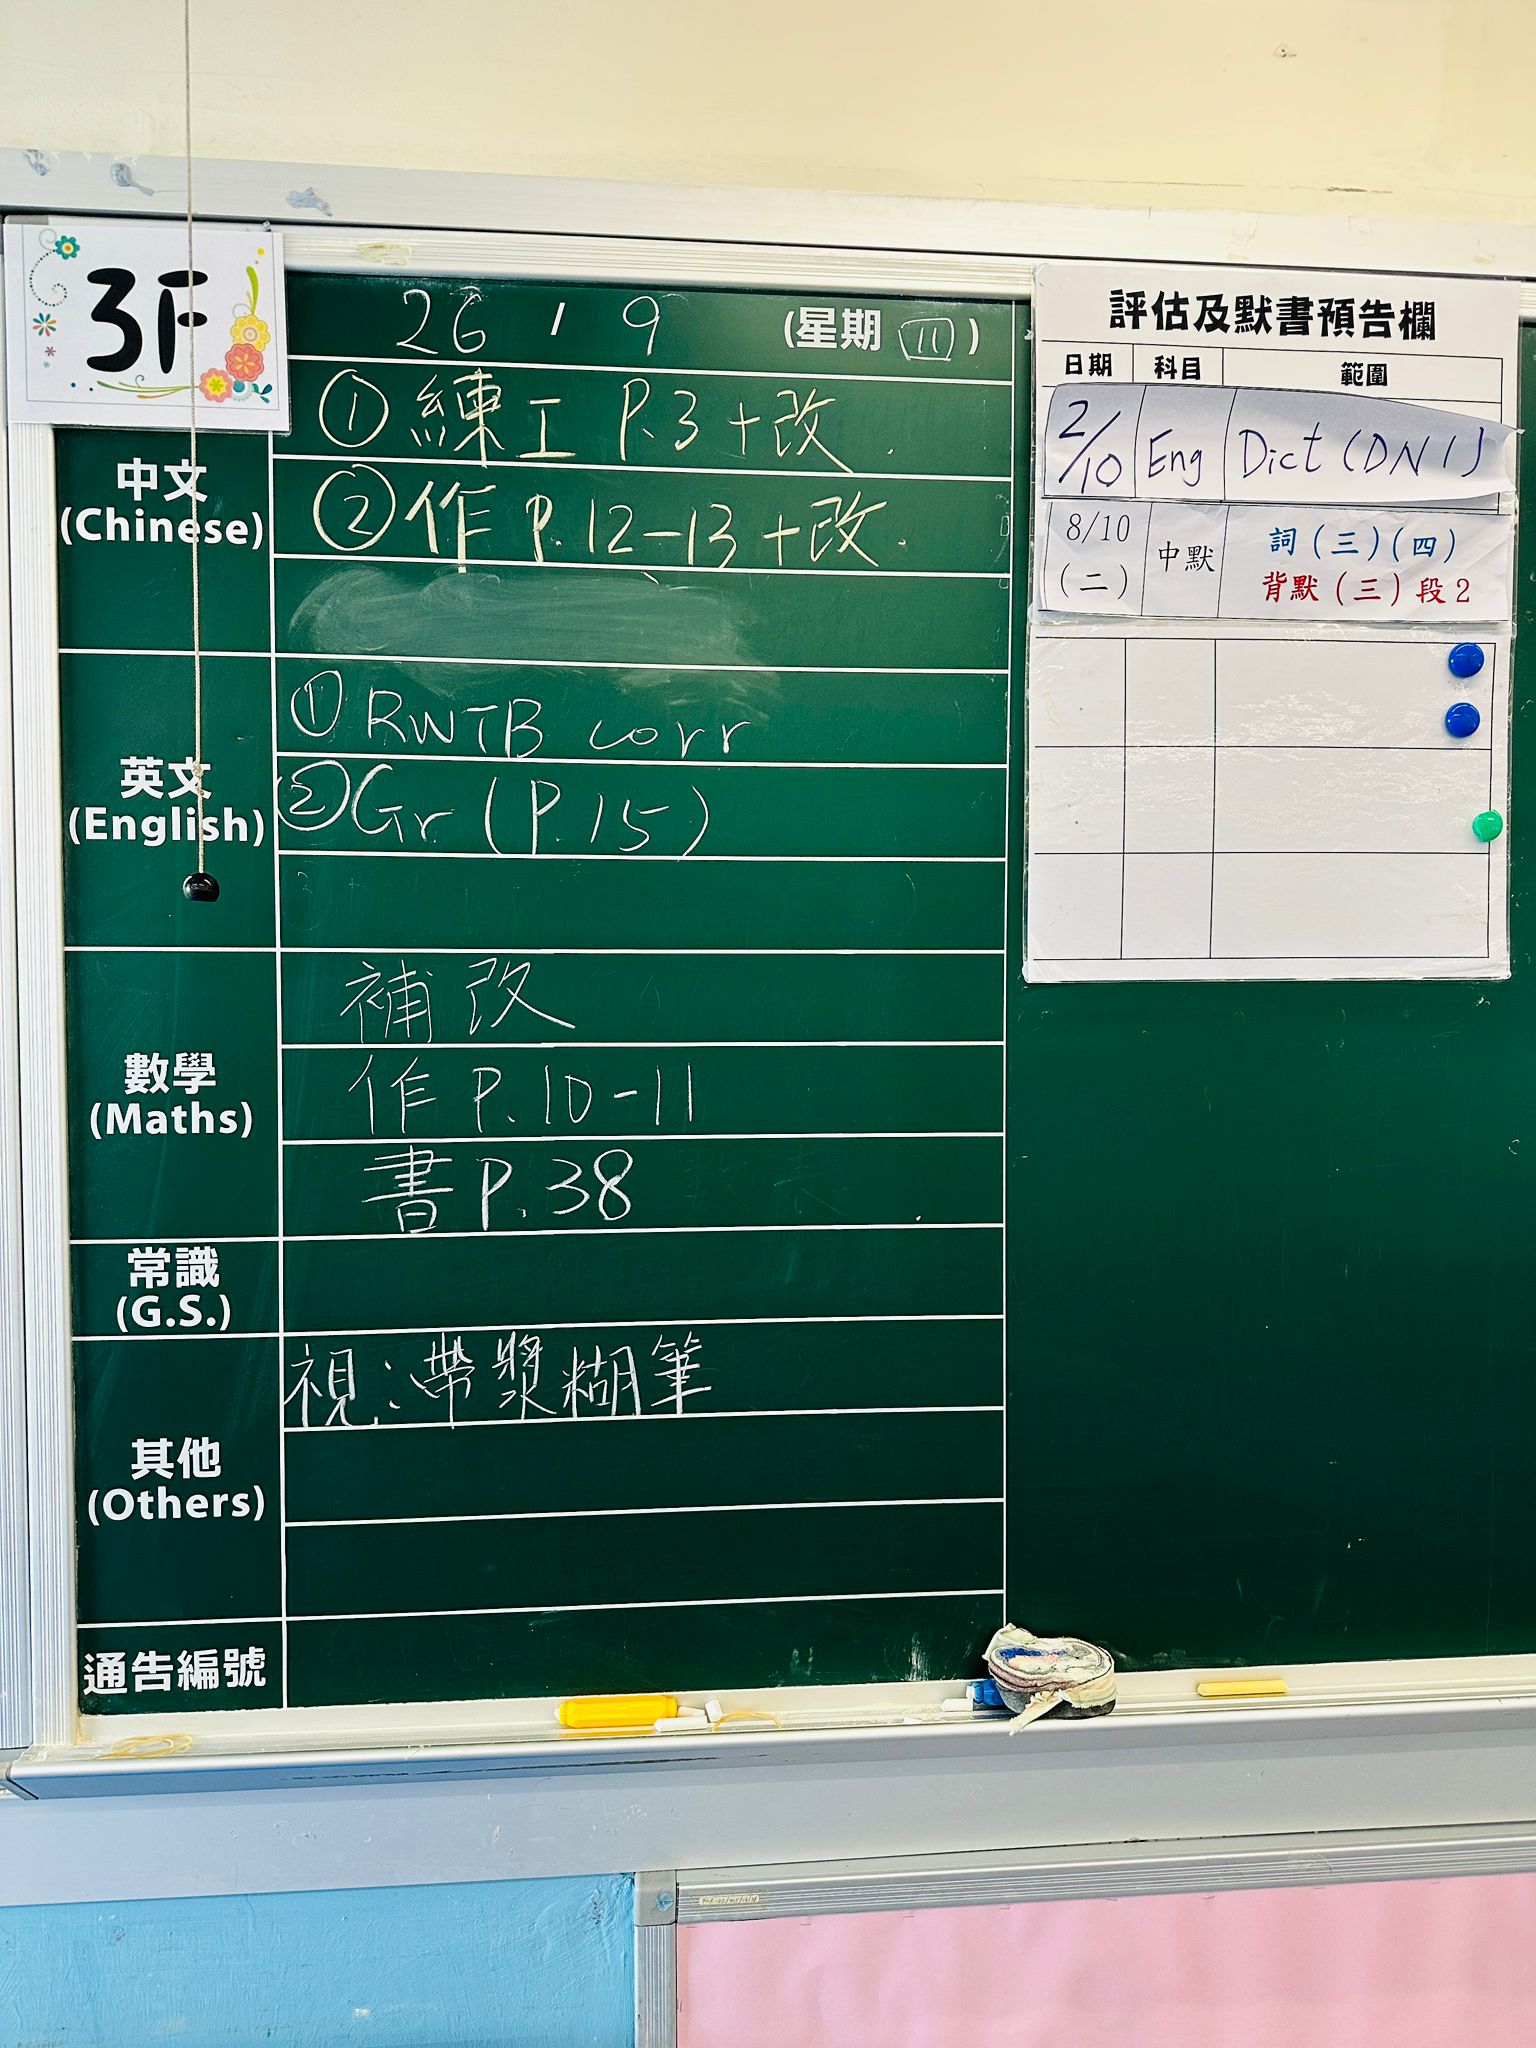 3F
26 , 9 (星期四)
中文
(Chinese)
①練工 P.3+改.
②作 P.12-13+改.
英文
(English)
①RWTB corr
②Gr (P.15)
數學
(Maths)
補改
作 P.10-11
書 P.38
常識
(G.S.)
其他
(Others)
視:帶漿糊筆
通告編號
評估及默書預告欄
日期 科目 範圍
2/10 Eng Dict (DN1)
8/10
(二) 中默 詞(三)(四)
背默(三)段2